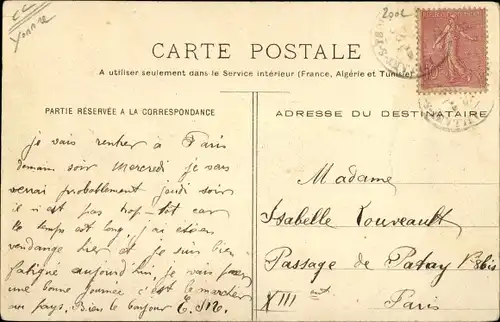 Yonne
CARTE POSTALE
A utiliser seulement dans le Service intérieur (France, Algérie et Tunisie)
PARTIE RÉSERVÉE A LA CORRESPONDANCE
ADRESSE DU DESTINATAIRE
je vais rentrer à Paris
demain soir Mercredi je vous
verrai probablement jeudi soir
il n'est pas trop tôt car
le temps est long, j'ai été en
vendange hier et je suis bien
fatigué aujourd'hui, je vais
une bonne journée c'est le marché
au pays. Bien le bonjour E. M.
Madame
Isabelle Louveault
Passage de Patay
XIII ent
Paris